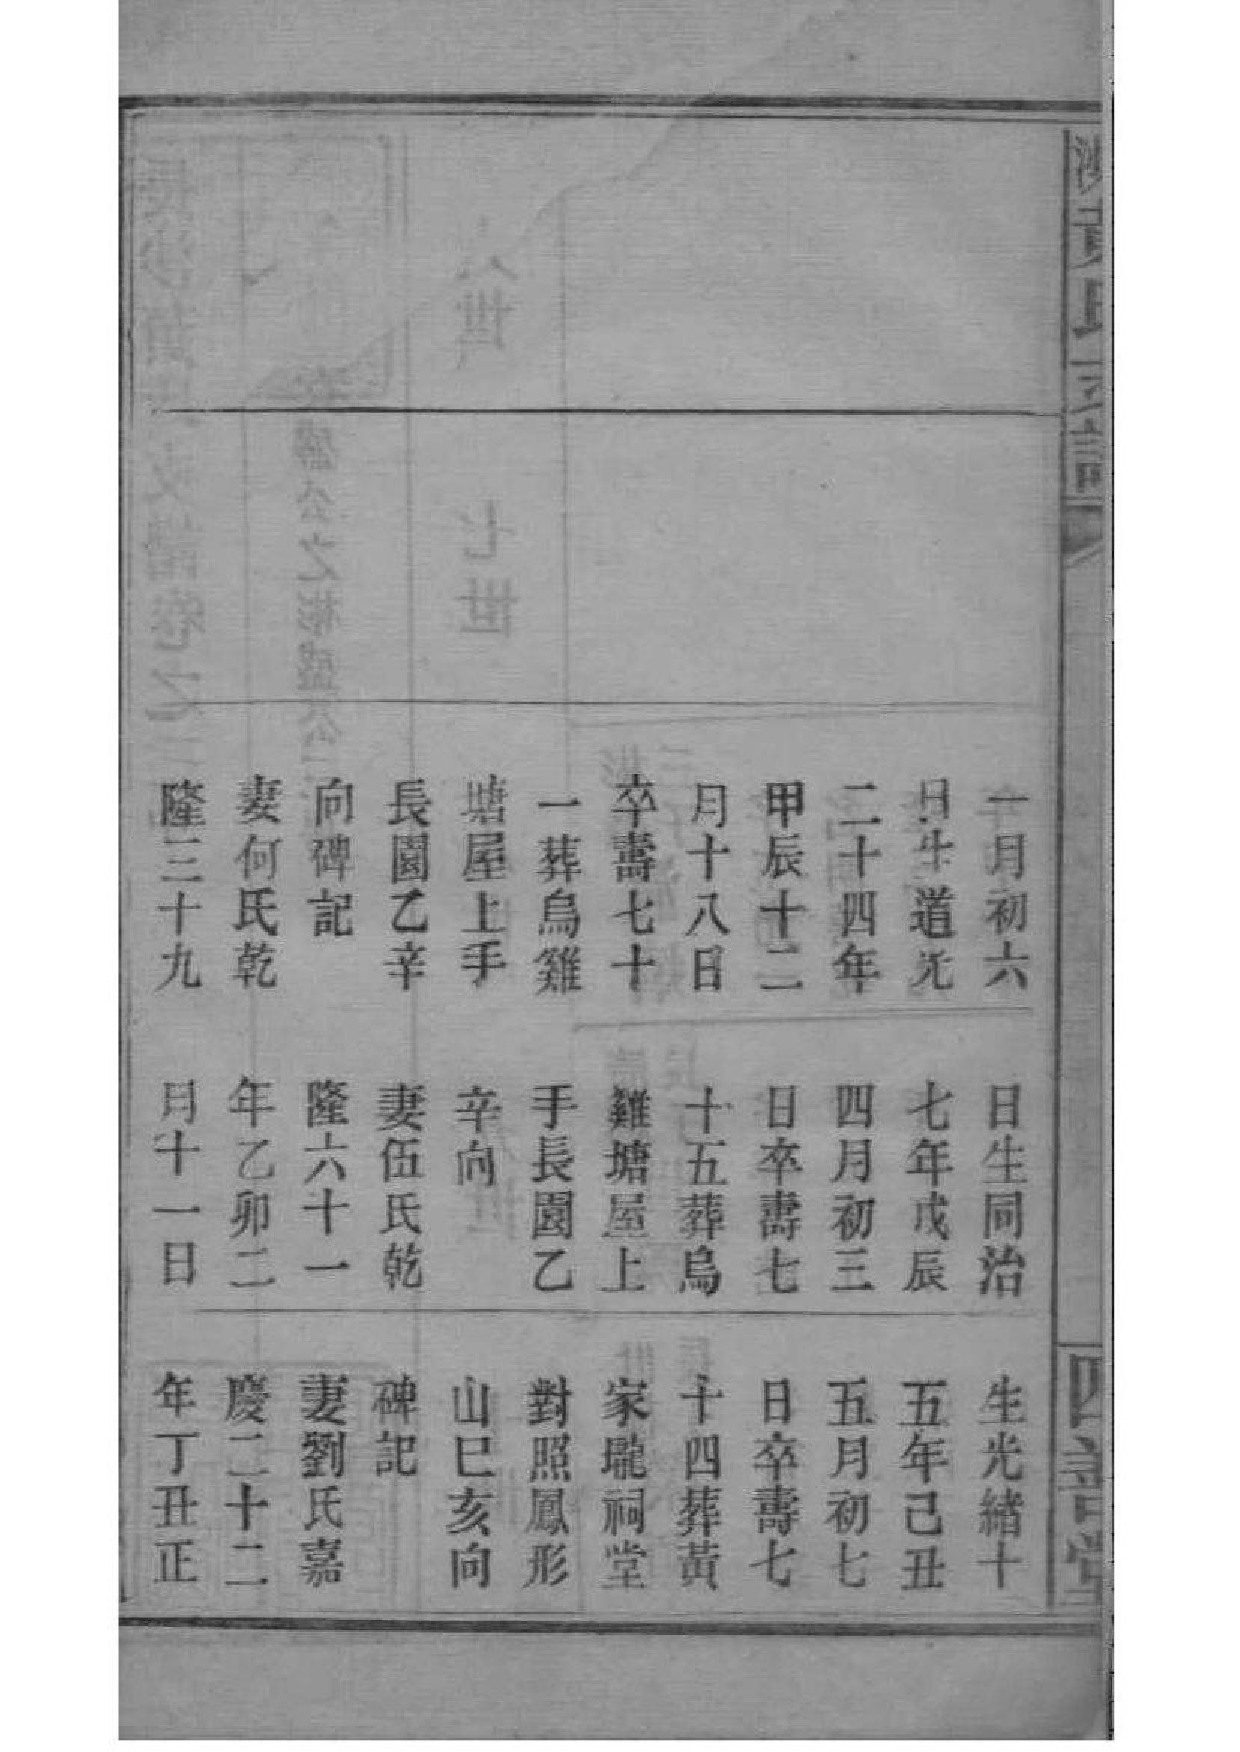 黃氏支譜
一月初六
日生道光
二十四年
甲辰十二
月十八日
卒壽七十
一葬烏雞
塘屋上手
長園乙辛
向碑記
妻何氏乾
隆三十九
日生同治
七年戊辰
四月初三
日卒壽七
十五葬烏
雞塘屋上
手長園乙
辛向
妻伍氏乾
隆六十一
年乙卯二
月十一日
生光緒十
五年己丑
五月初七
日卒壽七
十四葬黃
家壠祠堂
對照鳳形
山巳亥向
碑記
妻劉氏嘉
慶二十二
年丁丑正
四善堂